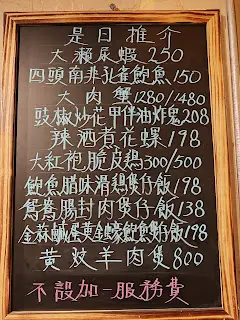 是日推介
大瀨尿蝦250
四頭南非孔雀鮑魚150
大肉蟹1280/1480
豉椒炒花甲伴油炸鬼208
辣酒煮花螺198
大紅袍脆皮鷄300/500
鮑魚腊味滑鷄煲仔飯198
鴛鴦腸封肉煲仔飯138
金蒜鹹蛋黃金蠔鮑魚炒飯198
黄炆羊肉煲800
不設加一服務費